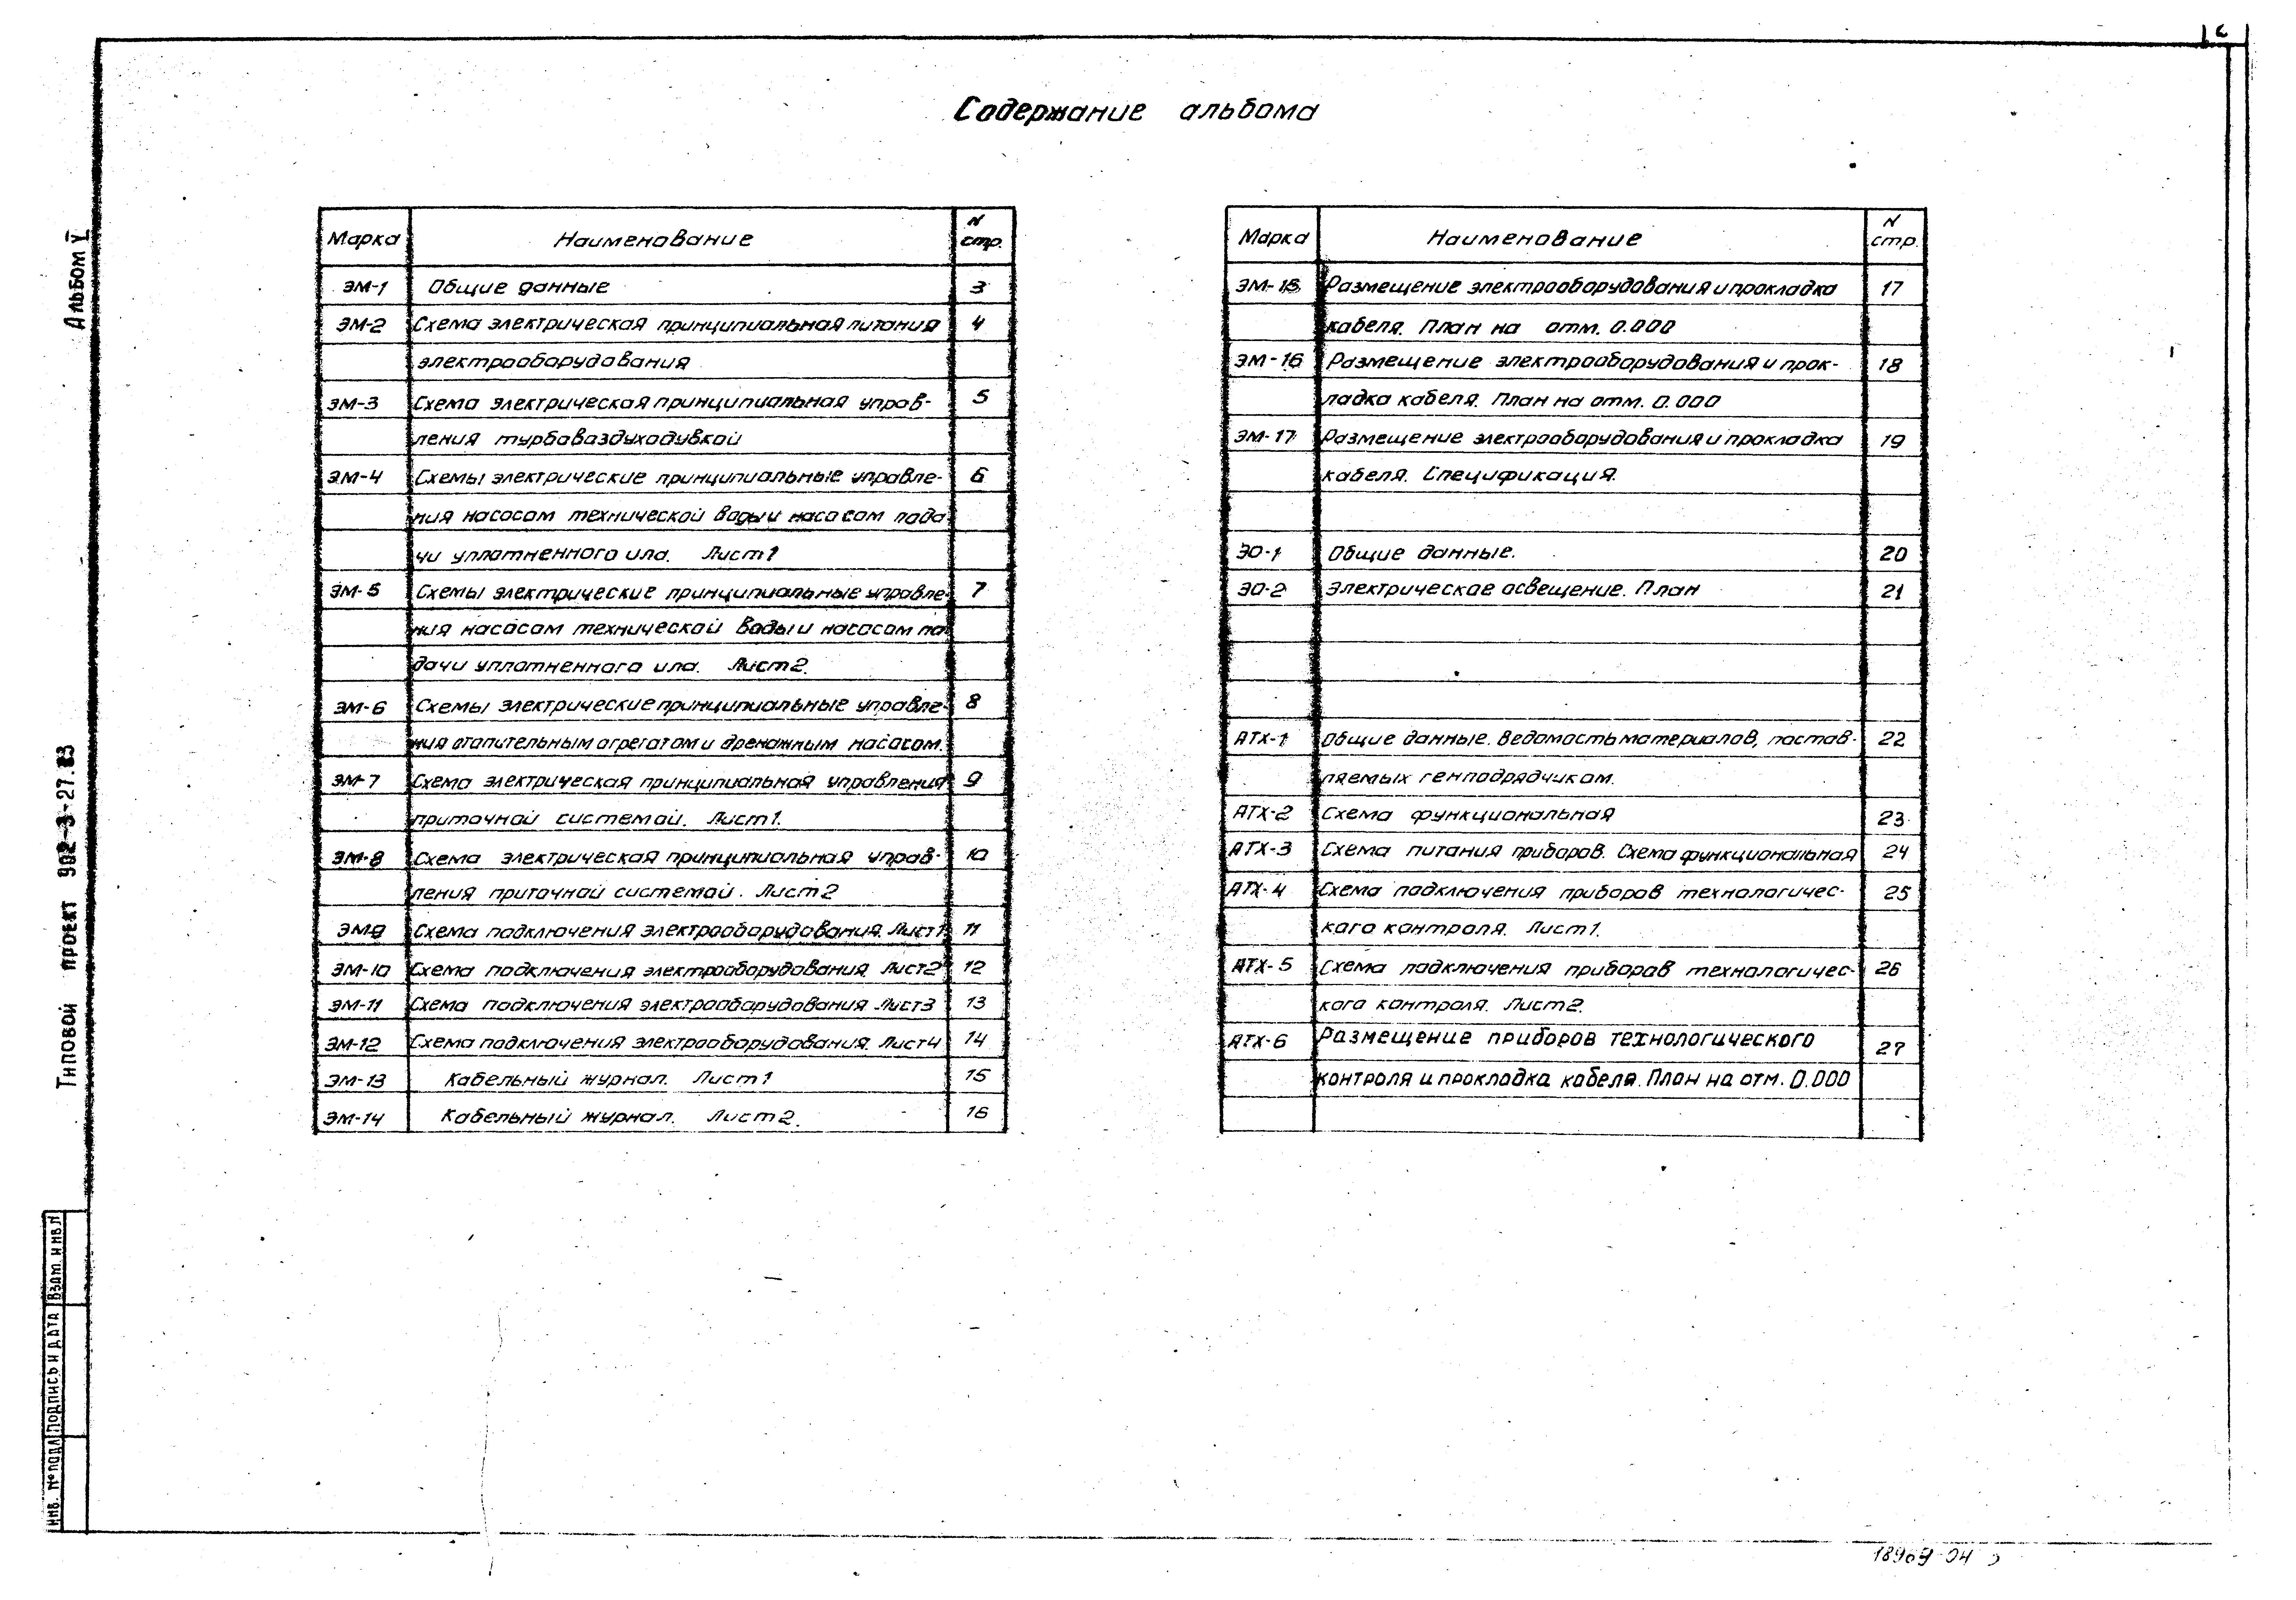 Содержание альбома
Марка Наименование N стр.
ЭМ-1 Общие данные 3
ЭМ-2 Схема электрическая принципиальная питания 4
электрооборудования
ЭМ-3 Схема электрическая принципиальная управ- 5
ления турбовоздуходувкой
ЭМ-4 Схемы электрические принципиальные управле- 6
ния насосом технической воды и насосом пода
чи уплотненного ила. Лист 1
ЭМ-5 Схемы электрические принципиальные управле- 7
ния насосом технической воды и насосом по
дачи уплотненного ила. Лист 2.
ЭМ-6 Схемы электрические принципиальные управле- 8
ния отопительным агрегатом и дренажным насосом.
ЭМ-7 Схема электрическая принципиальная управления 9
приточной системой. Лист 1.
ЭМ-8 Схема электрическая принципиальная управ- 10
ления приточной системой. Лист 2
ЭМ9 Схема подключения электрооборудования. Лист 1 11
ЭМ-10 Схема подключения электрооборудования Лист 2 12
ЭМ-11 Схема подключения электрооборудования Лист 3 13
ЭМ-12 Схема подключения электрооборудования. Лист 4 14
ЭМ-13 Кабельный журнал. Лист 1 15
ЭМ-14 Кабельный журнал. Лист 2. 16
Марка Наименование N стр.
ЭМ-15 Размещение электрооборудования и прокладка 17
кабеля. План на отм. 0.000
ЭМ-16 Размещение электрооборудования и прок- 18
ладка кабеля. План на отм. 0.000
ЭМ-17 Размещение электрооборудования и прокладка 19
кабеля. Спецификация.
ЭО-1 Общие данные. 20
ЭО-2 Электрическое освещение. План 21
АТХ-1 Общие данные. Ведомость материалов, постав- 22
ляемых генподрядчиком.
АТХ-2 Схема функциональная 23
АТХ-3 Схема питания приборов. Схема функциональная 24
АТХ-4 Схема подключения приборов технологичес- 25
кого контроля. Лист 1.
АТХ-5 Схема подключения приборов технологичес- 26
кого контроля. Лист 2.
АТХ-6 Размещение приборов технологического 27
контроля и прокладка кабеля. План на отм. 0.000
Альбом V
Типовой проект 902-3-27.83
Взам. инв. N
Подпись и дата
Инв. № подл
18969-04